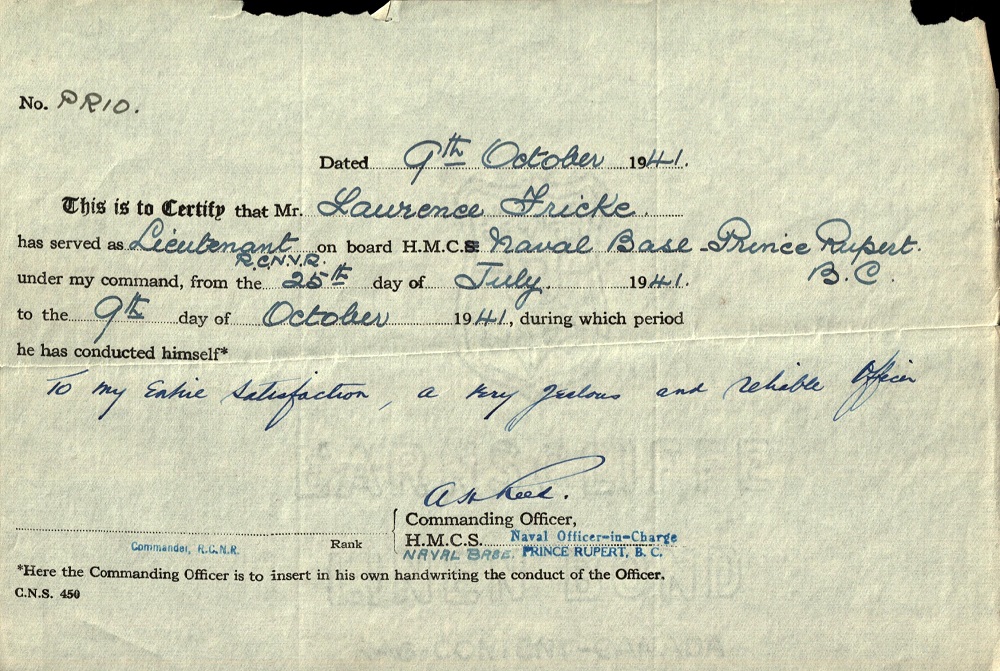 No. PR10.
Dated 9th October 1941.
This is to Certify that Mr. Laurence Fricke.
has served as Lieutenant on board H.M.C.S. Naval Base - Prince Rupert.
R.C.N.V.R. B.C.
under my command, from the 25th day of July. 1941.
to the 9th day of October 1941, during which period
he has conducted himself*
To my Entire Satisfaction, a very zealous and reliable Officer
Commanding Officer,
H.M.C.S. Naval Officer-in-Charge
Commander, R.C.N.R. Rank NAVAL BASE. PRINCE RUPERT, B. C.
*Here the Commanding Officer is to insert in his own handwriting the conduct of the Officer.
C.N.S. 450